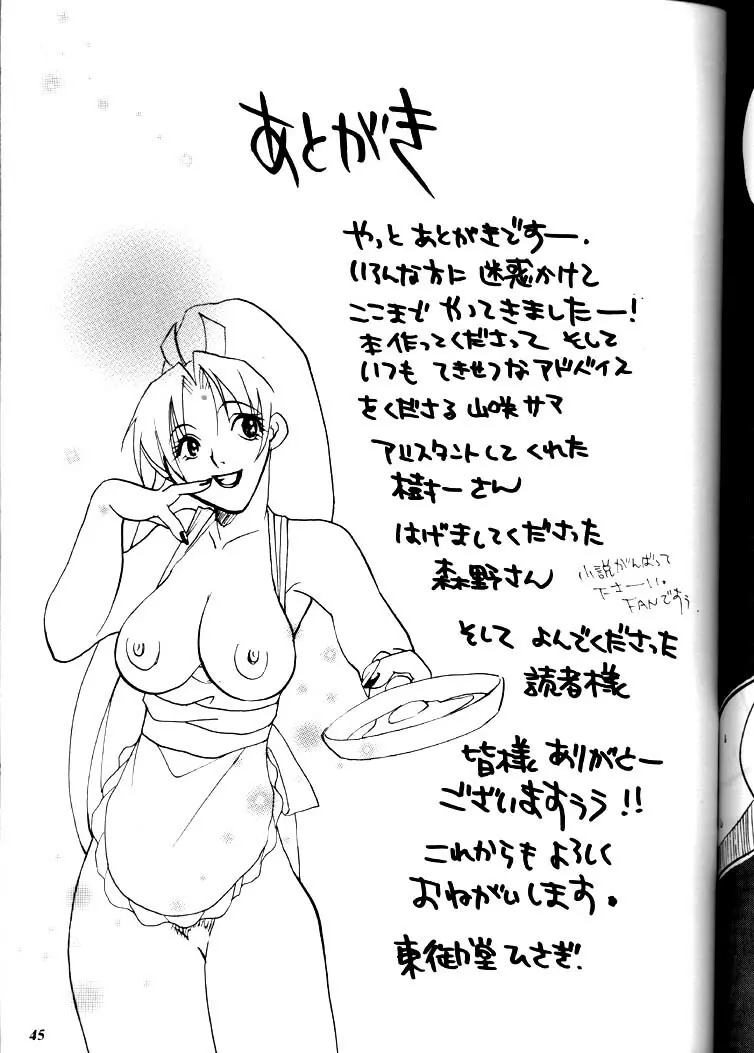 あとがき
やっと あとがきですー.
いろんな方に 迷惑かけて
ここまで やってきましたー!
本作ってくださって そして
いつも てきせつなアドバイス
をくださる 山咲サマ
アシスタントして くれた
樹すーさん
はげましてくださった
森野さん
小説がんばって
ださーい。
FANですぅ.
そして よんでくださった
読者様
皆様 ありがとー
ございますぅぅ!!
これからも よろしく
おねがいします。
東御堂 ひさぎ.
45